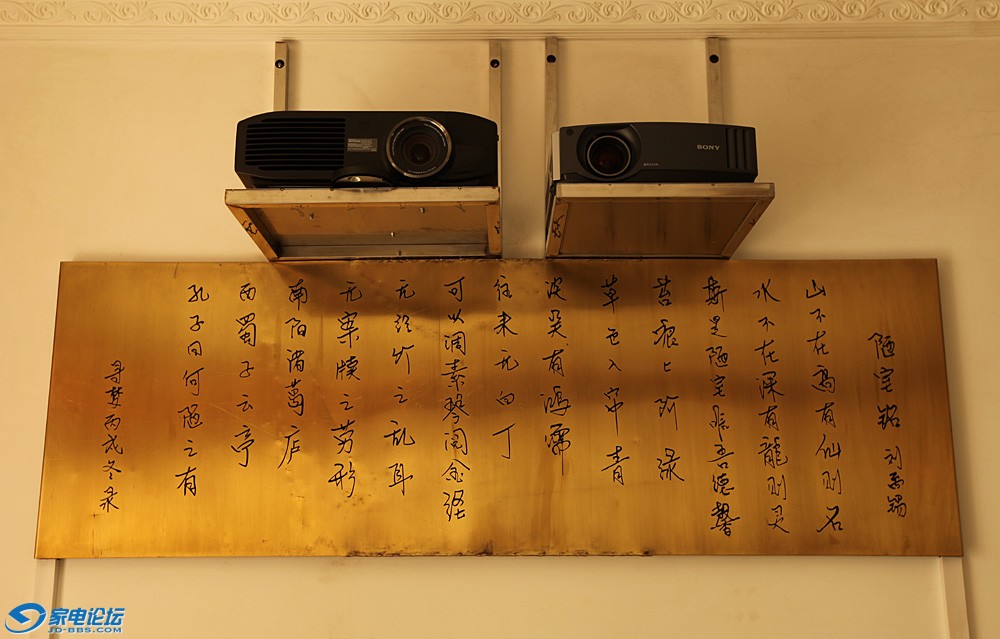 陋室铭 刘禹锡
山不在高有仙则名
水不在深有龍则灵
斯是陋室惟吾德馨
苔痕上阶绿
草色入帘青
谈笑有鸿儒
往来无白丁
可以调素琴阅金经
无丝竹之乱耳
无案牍之劳形
南阳诸葛庐
西蜀子云亭
孔子曰何陋之有
寻梦丙戌冬录
SONY
家电论坛
JD-BBS.COM